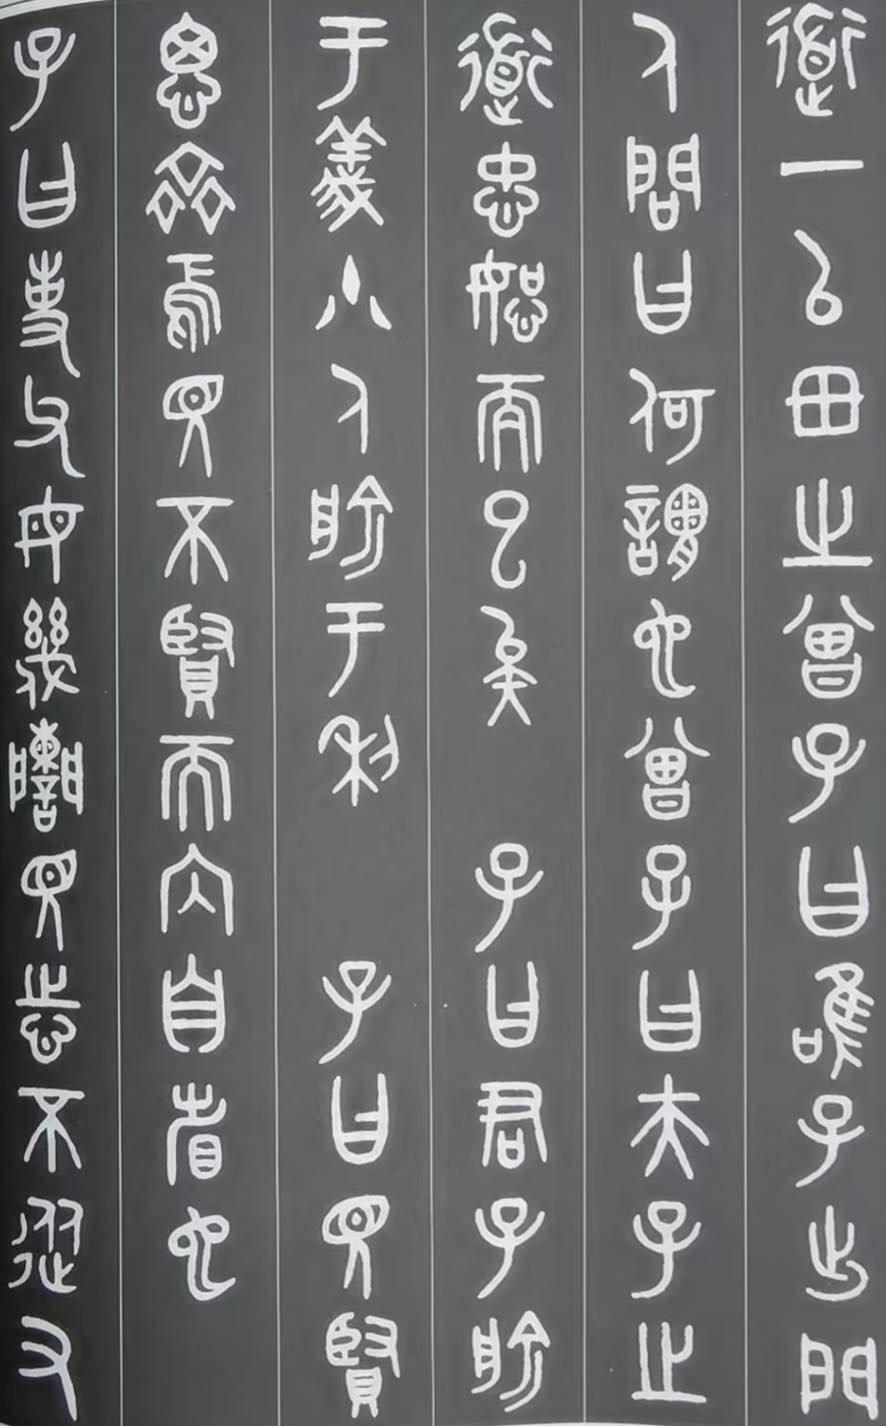 道一以貫之曾子曰唯子出門
人問曰何謂也曾子曰夫子之
道忠恕而已矣 子曰君子喻
于義小人喻于利 子曰見賢
思齊焉見不賢而內自省也
子曰事父母幾諫見志不從又